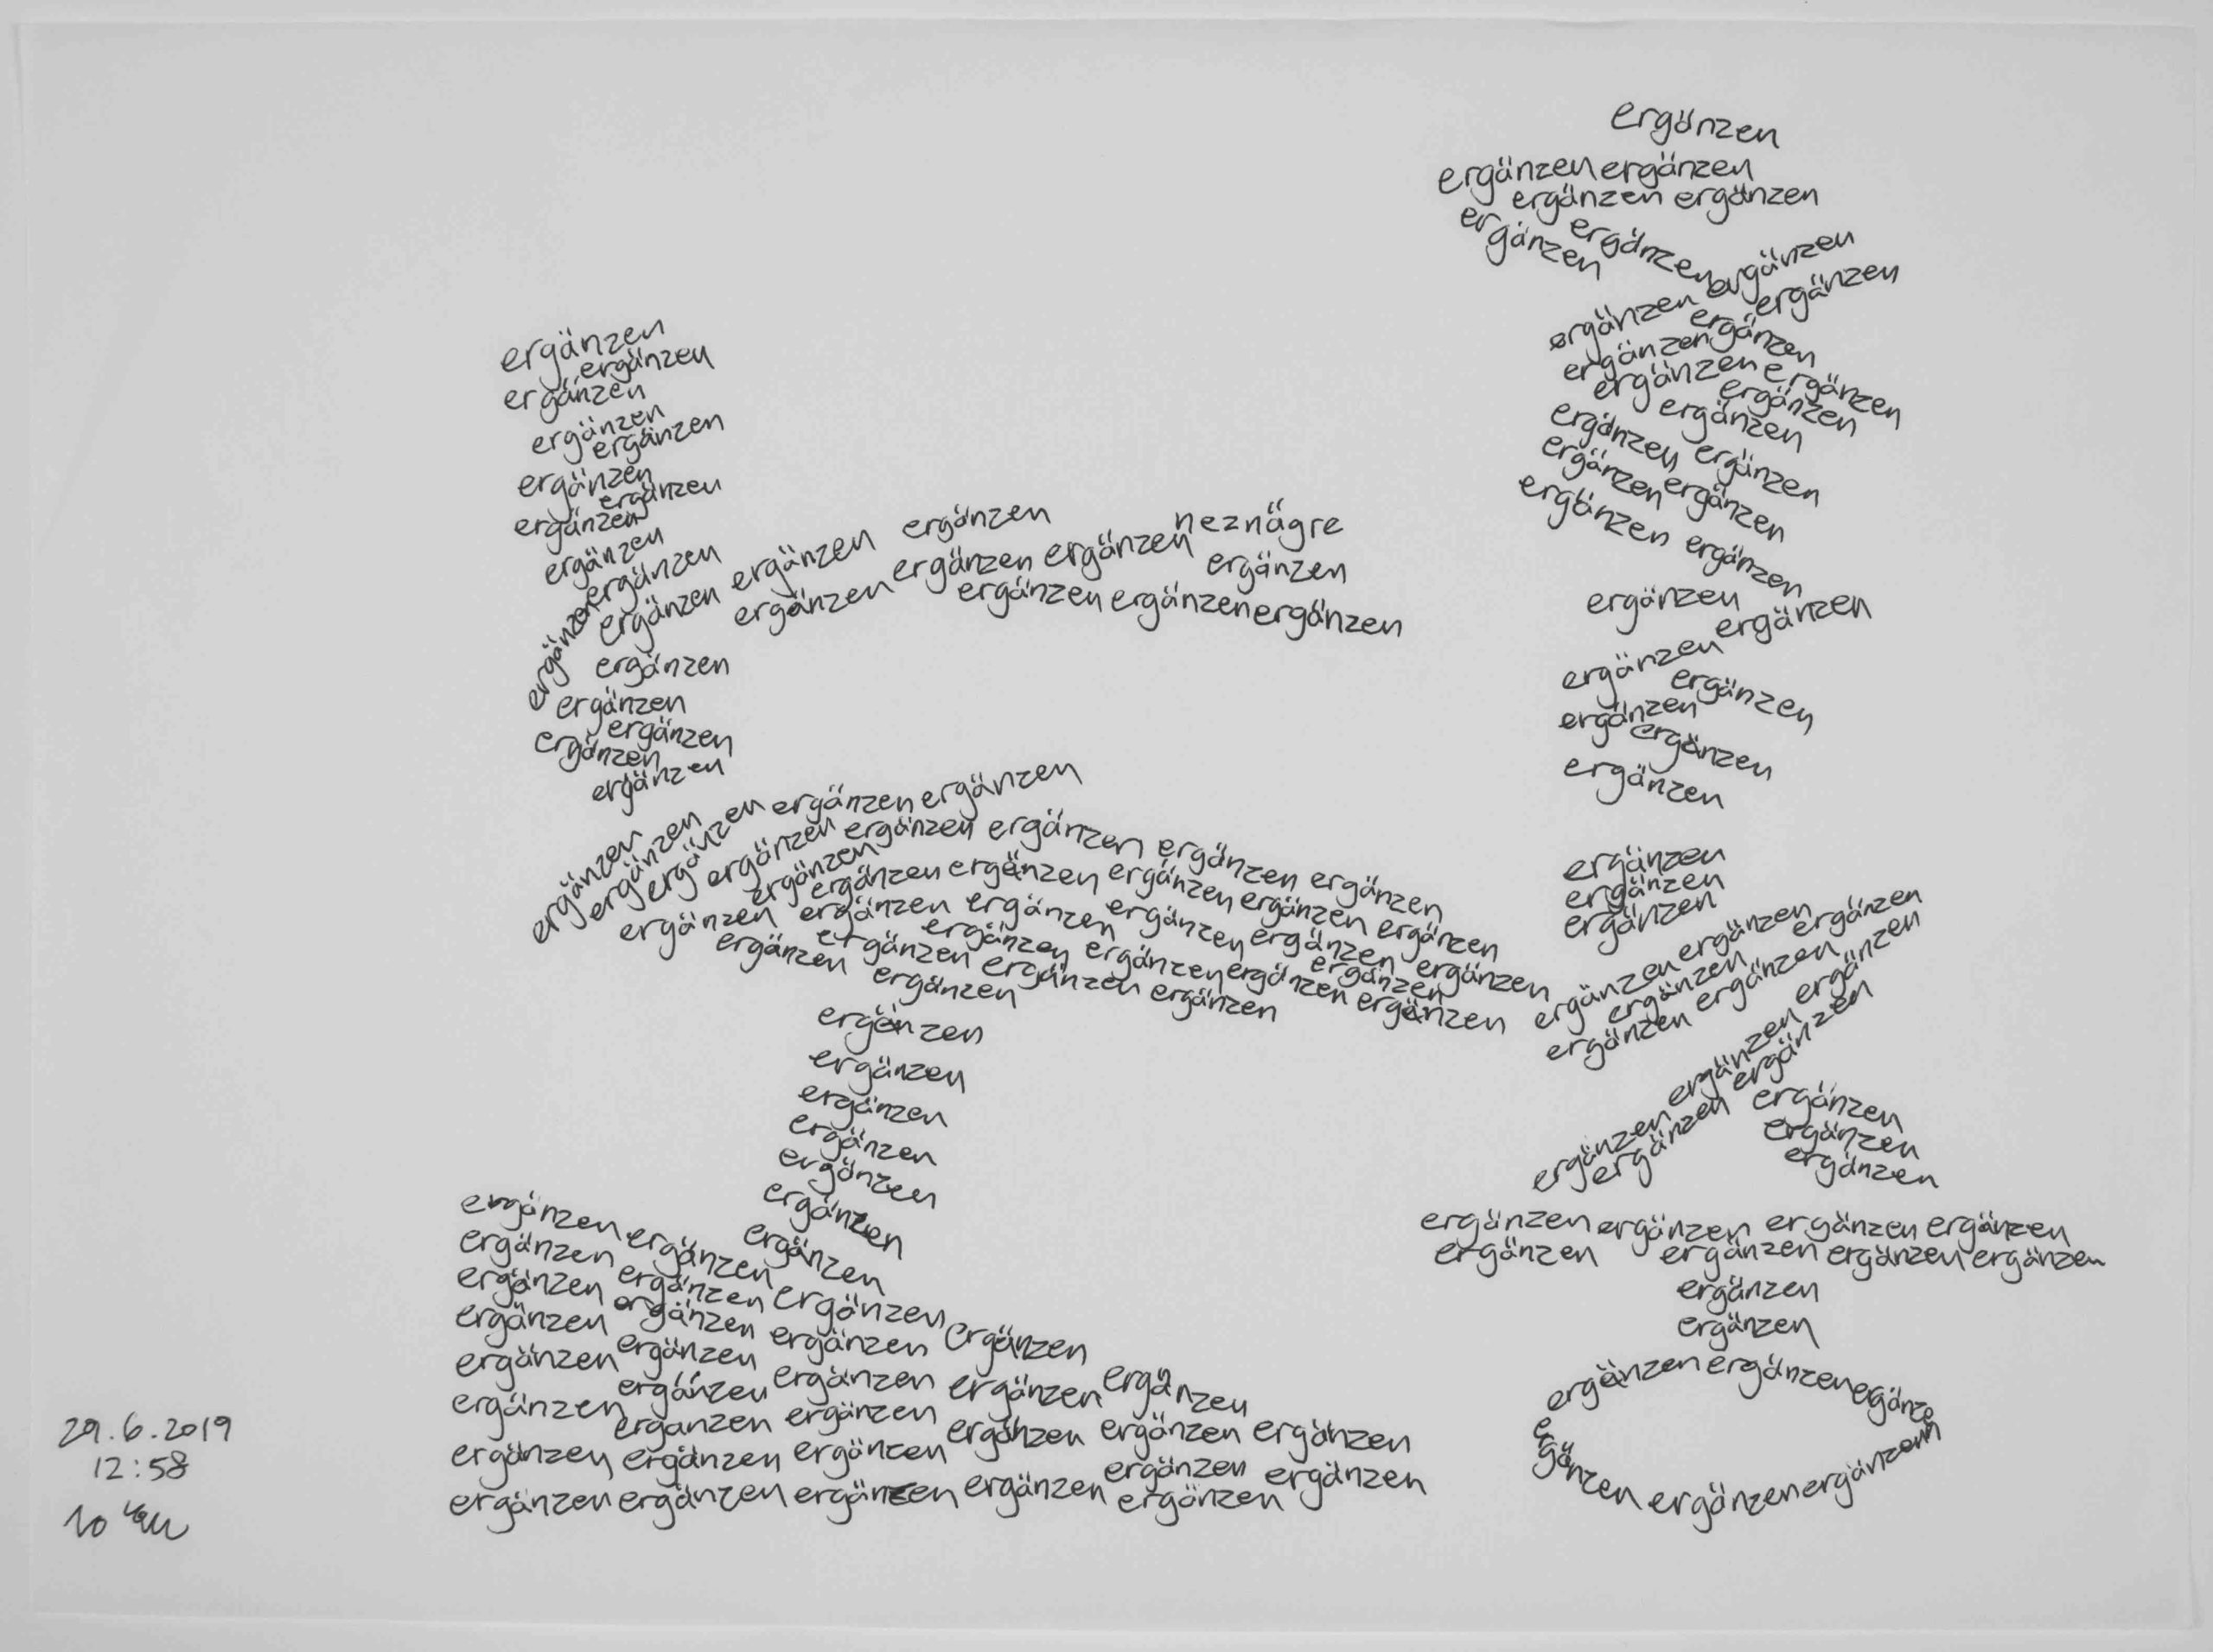 ergänzen
ergänzen ergänzen
ergänzen ergänzen
ergänzen ergänzen ergänzen
ergänzen ergänzen
ergänzen
ergänzen ergänzen
ergänzen ergänzen
ergänzen
ergänzen
ergänzen ergänzen
ergänzen ergänzen
ergänzen ergänzen
ergänzen
ergänzen
ergänzen
ergänzen
ergänzen
ergänzen
ergänzen
ergänzen
ergänzen
ergänzen
ergänzen
ergänzen
ergänzen ergänzen ergänzen neznägre
ergänzen ergänzen ergänzen ergänzen ergänzen
ergänzen ergänzen ergänzen
ergänzen
ergänzen
ergänzen
ergänzen
ergänzen
ergänzen
ergänzen
ergänzen ergänzen
ergänzen
ergänzen
ergänzen
ergänzen
ergänzen
ergänzen ergänzen ergänzen ergänzen ergänzen
ergänzen ergänzen ergänzen ergänzen ergänzen
ergänzen ergänzen ergänzen ergänzen ergänzen ergänzen
ergänzen ergänzen ergänzen ergänzen ergänzen ergänzen
ergänzen ergänzen ergänzen ergänzen ergänzen
ergänzen ergänzen ergänzen ergänzen
ergänzen ergänzen
ergänzen
ergänzen
ergänzen
ergänzen ergänzen ergänzen
ergänzen ergänzen ergänzen
ergänzen ergänzen ergänzen
ergänzen ergänzen
ergänzen
ergänzen
ergänzen
ergänzen
ergänzen
ergänzen
ergänzen
ergänzen
ergänzen
ergänzen
ergänzen ergänzen
ergänzen ergänzen ergänzen
ergänzen ergänzen ergänzen ergänzen
ergänzen ergänzen ergänzen ergänzen ergänzen
ergänzen ergänzen ergänzen
ergänzen ergänzen ergänzen ergänzen ergänzen ergänzen
ergänzen ergänzen ergänzen ergänzen ergänzen
ergänzen ergänzen ergänzen ergänzen ergänzen
ergänzen ergänzen ergänzen ergänzen
ergänzen ergänzen ergänzen ergänzen
ergänzen
ergänzen
ergänzen ergänzen ergänzen
ergänzen ergänzen ergänzen
29.6.2019
12:58